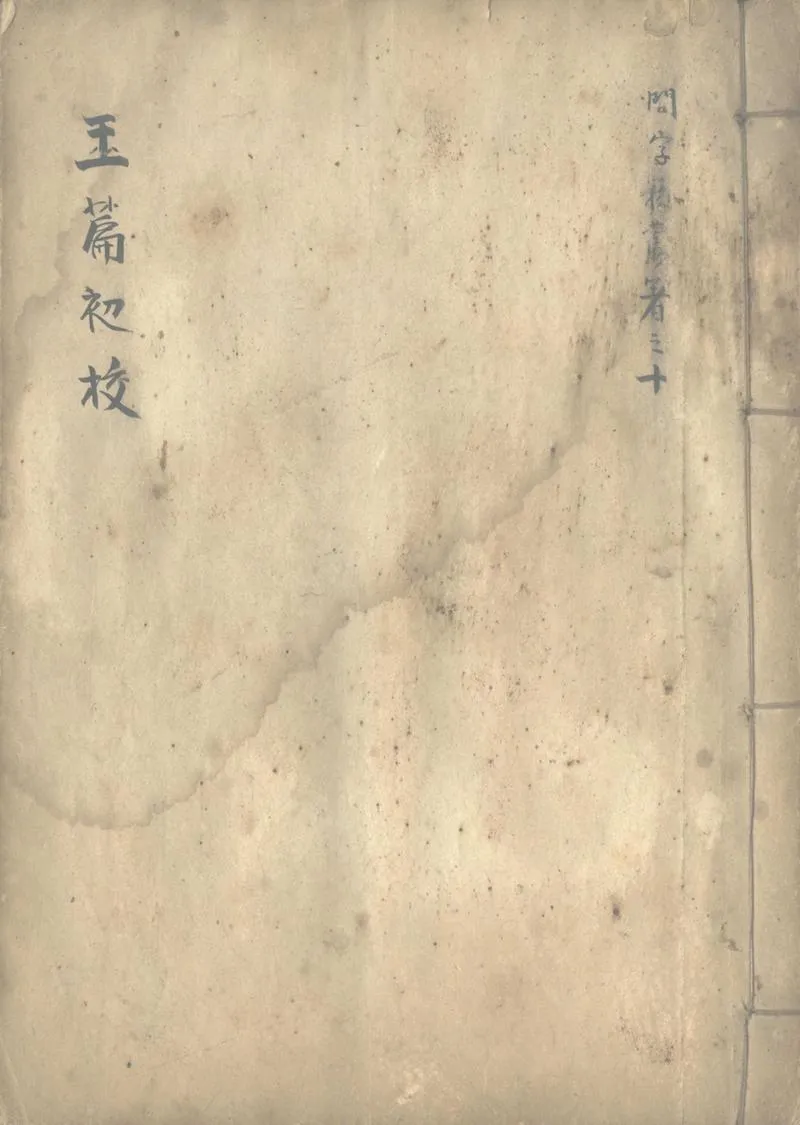 問字樓叢著之十
玉篇初校